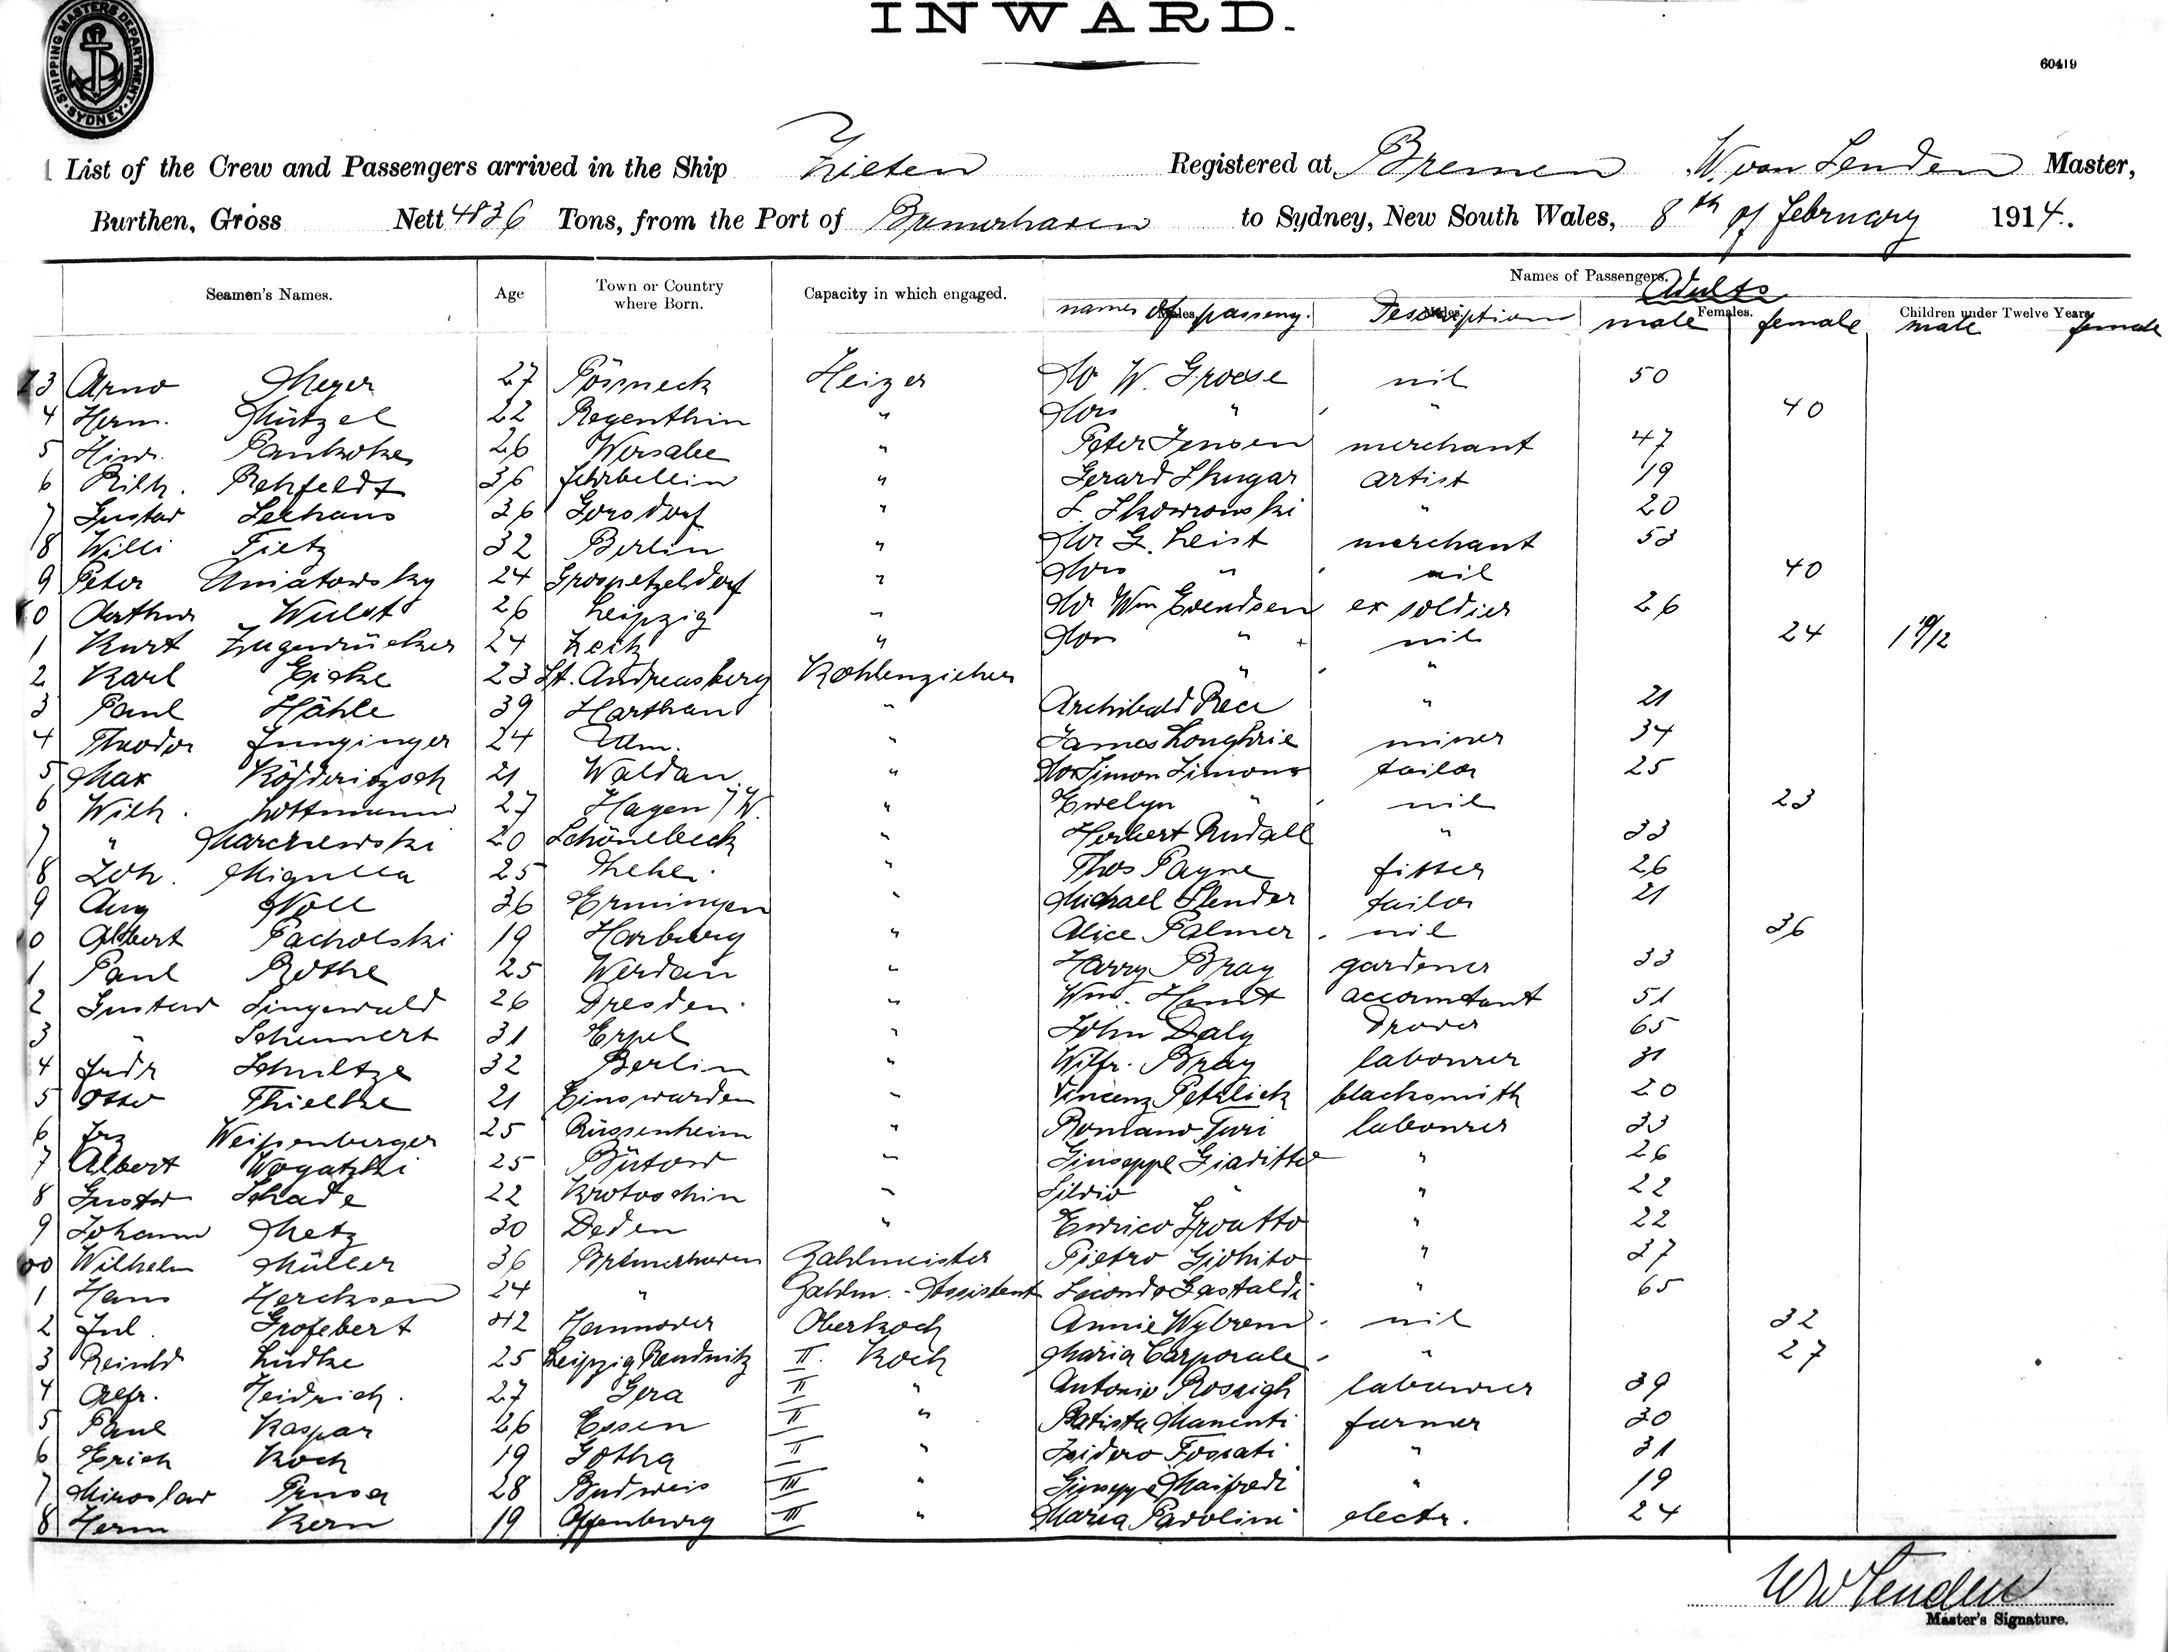 SHIPPING MASTERS DEPARTMENT. SYDNEY
INWARD.
60419
List of the Crew and Passengers arrived in the Ship Zieten Registered at Bremen W. von Senden Master,
Burthen, Gross Nett 4836 Tons, from the Port of Bremerhaven to Sydney, New South Wales, 8th of february 1914.
Seamen's Names. Age Town or Country where Born. Capacity in which engaged. Names of Passengers. Adults
names of passeng. Description male Females. female Children under Twelve Years. male female
3 Arno Meyer 27 Pösneck Heizer Mr W. Groose nil 50
4 Herm. Mützel 22 Regenthin " Mrs " " 40
5 Hinr. 26 Wersabe " Peter Jensen merchant 47
6 Rehfeldt 36 fehrbellin " Gerard artist 19
7 Gustav 36 Gorsdorf " Skowronski " 20
8 Willi Tietz 32 Berlin " Mr G. Leist merchant 53
9 Peter Uniatowsky 24 " Mrs " nil 40
0 Arthur Wulst 26 Leipzig " Mr Wm Evendsen ex soldier 26
1 Kurt Zugenrücker 24 Zeitz " Mrs " nil 24 1 10/12
2 Karl Eicke 23 St. Andreasberg Kohlenzieher " "
3 Paul Hähle 39 Harthau " Archibald Race " 21
4 Theodor Junginger 24 Ulm. " James Loughrie miner 34
5 Max 21 Waldau " Simon Simons tailor 25
6 Wilh. Lottmann 27 Hagen / W. " Ewelyn " nil 23
7 " Marczewski 20 Schönebeck " Herbert Rudall " 33
8 Joh. Migulla 25 " Thos Payne fitter 26
9 Aug Noll 36 Ermingen " Michael Slender tailor 21
0 Albert Pacholski 19 Harburg " Alice Palmer nil 36
1 Paul Rothe 25 Werdau " Harry Bray gardener 33
2 Gustav Singewald 26 Dresden " Wm. Hunt accountant 51
3 " Scheunert 31 Erpel " John Daly drover 65
4 Fredr Schultze 32 Berlin " Wilfr. Bray labourer 31
5 Otto Thielke 21 Einswarden " Vincenz Petzlick blacksmith 20
6 Frz Weissenberger 25 Rüssenheim " Romano Turi labourer 33
7 Albert Wogatzki 25 Bütow " Giuseppe Giaditto " 26
8 Gustav Schade 22 Krotoschin " Silvio " " 22
9 Johann Metz 30 Deden " Enrico Groutto " 22
00 Wilhelm Müller 36 Bremerhaven Zahlmeister Pietro " 37
1 Hans Hercksen 24 " Zahlm.-Assistent Secondo Gastaldi " 65
2 Jul. Grosebert 42 Hannover Oberkoch Annie nil 32
3 Reinhd Lüdke 25 Leipzig Reudnitz II. Koch Maria Carporale " 27
4 Alfr. Heidrich. 27 Gera II " Antonio labourer 39
5 Paul Kaspar 26 Essen II " Batista Manenti farmer 30
6 Erich Koch 19 Gotha II " Isidero Fossati " 31
7 Miroslav Prusa 28 Budweis III " Giuseppe Maifredi " 19
8 Herm Kern 19 Offenburg III " Maria Parolini electr. 24
Master's Signature.